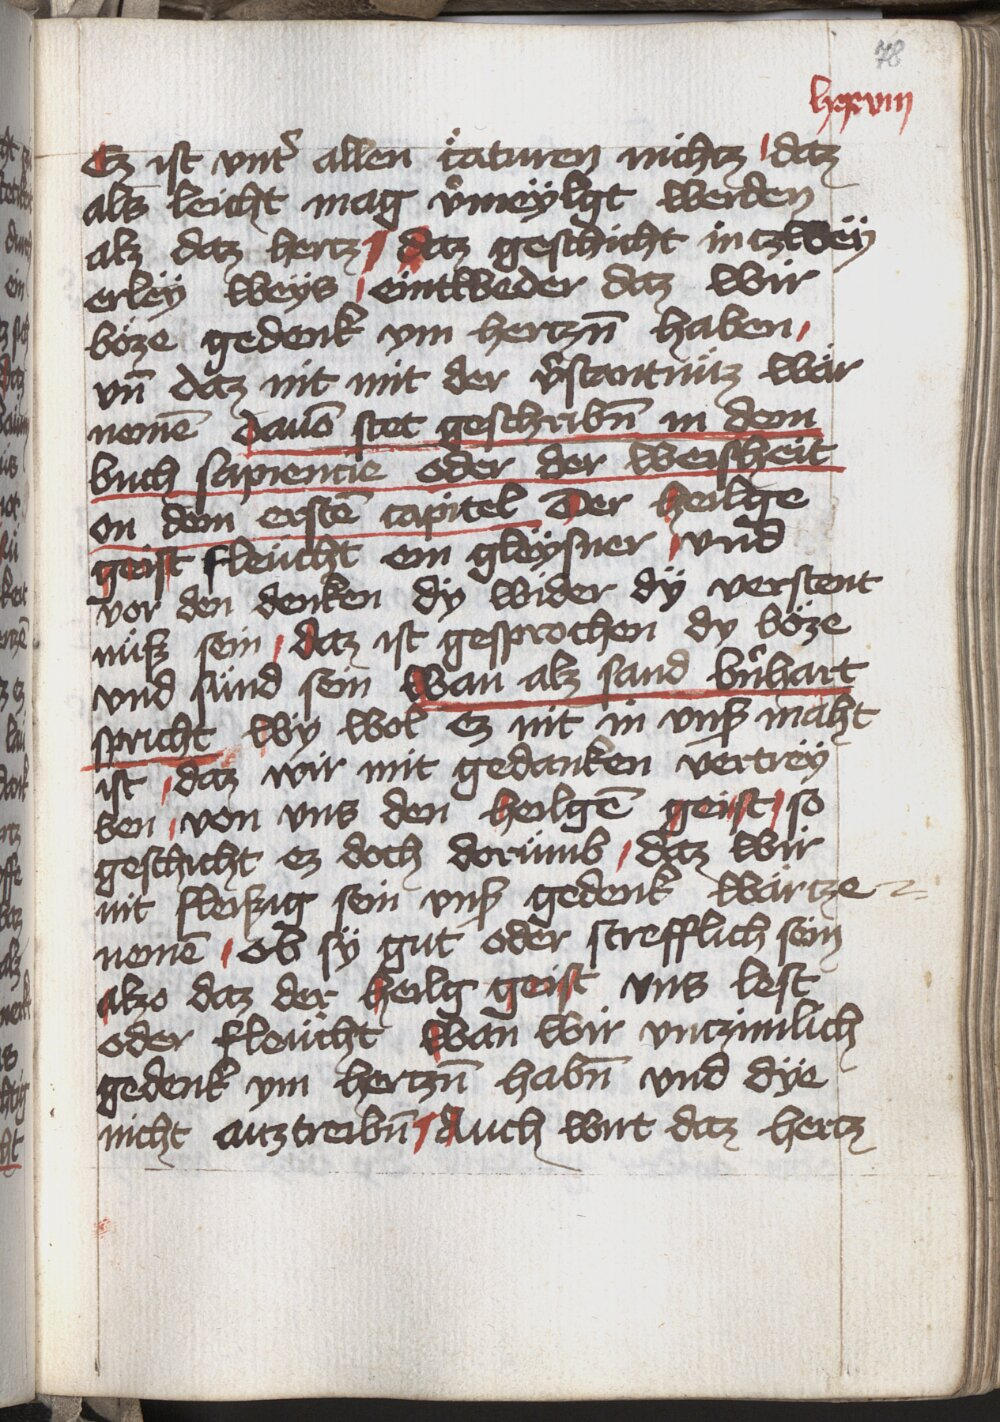 78
lxxviii
Ez ist vnt̉ allen c̉aturen nichtz / datz
als leicht mag v̉meÿlgt werden
alz daz hertz / daz geschicht in tzweÿ
erleÿ weÿs / eintweder daz wir
böze gedenk ym hertzn̄ haben /
vn̄ daz nit mit der v̉stantnütz war
nemē Dauō stet geschribn̄ in dem
buch sapiencie oder der weisheit
on dem erstē capitel Der heilge
geist fleücht ein gleÿsner / vnd
vor den denken dy wider dÿ verstent
nüß sein / daz ist gesprochen dy böze
vnd sünd sein Wan alz sand bn̉hart
spricht wÿ wol ez nit in vnß maht
ist / daz wir mit gedanken vertreÿ
ben / von vns den heilgē geist / so
geschicht ez doch dorümb / daz wir
nit fleißig sein vnß gedenk war tze
nemē / ob sÿ gut oder strefflich sein
alzo daz der heilg geist vns lest
oder fleücht Wan wir vntzimlich
gedenk ym hertzn̄ habn̄ vnd dÿe
nicht autztreibn̄ / Auch wirt datz hertz